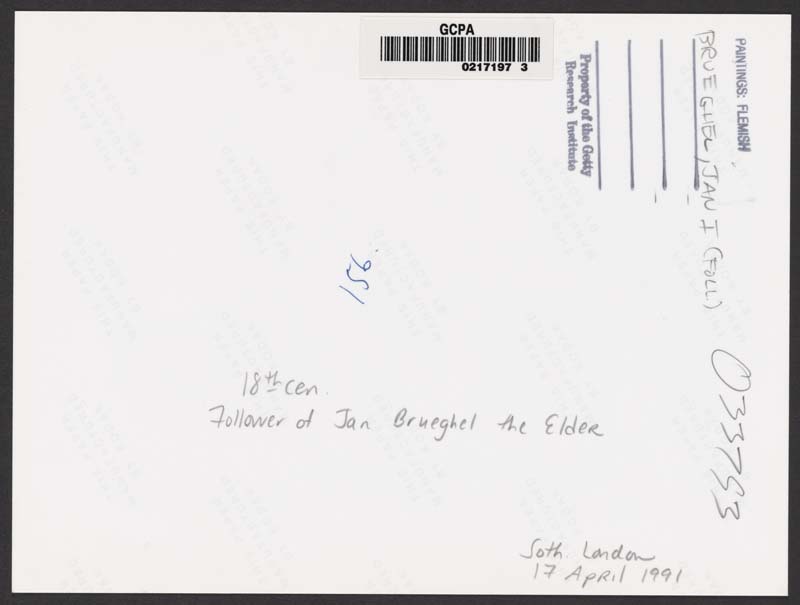 GCPA
0217197 3
PAINTINGS: FLEMISH
BRUEGHEL, JAN I (FOLL)
Property of the Getty
Research Institute
156.
18th cen.
Follower of Jan Brueghel the Elder
033753
Soth. London
17 April 1991